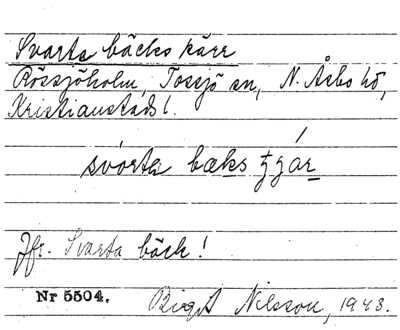 Svarta bäcks kärr
Rössjöholm, Tossjö sn, N. Åsbo hd,
Kristianstads l.
svórta bæks
Jfr. Svarta bäck!
Nr 5504. Birgit Nilsson, 1943.